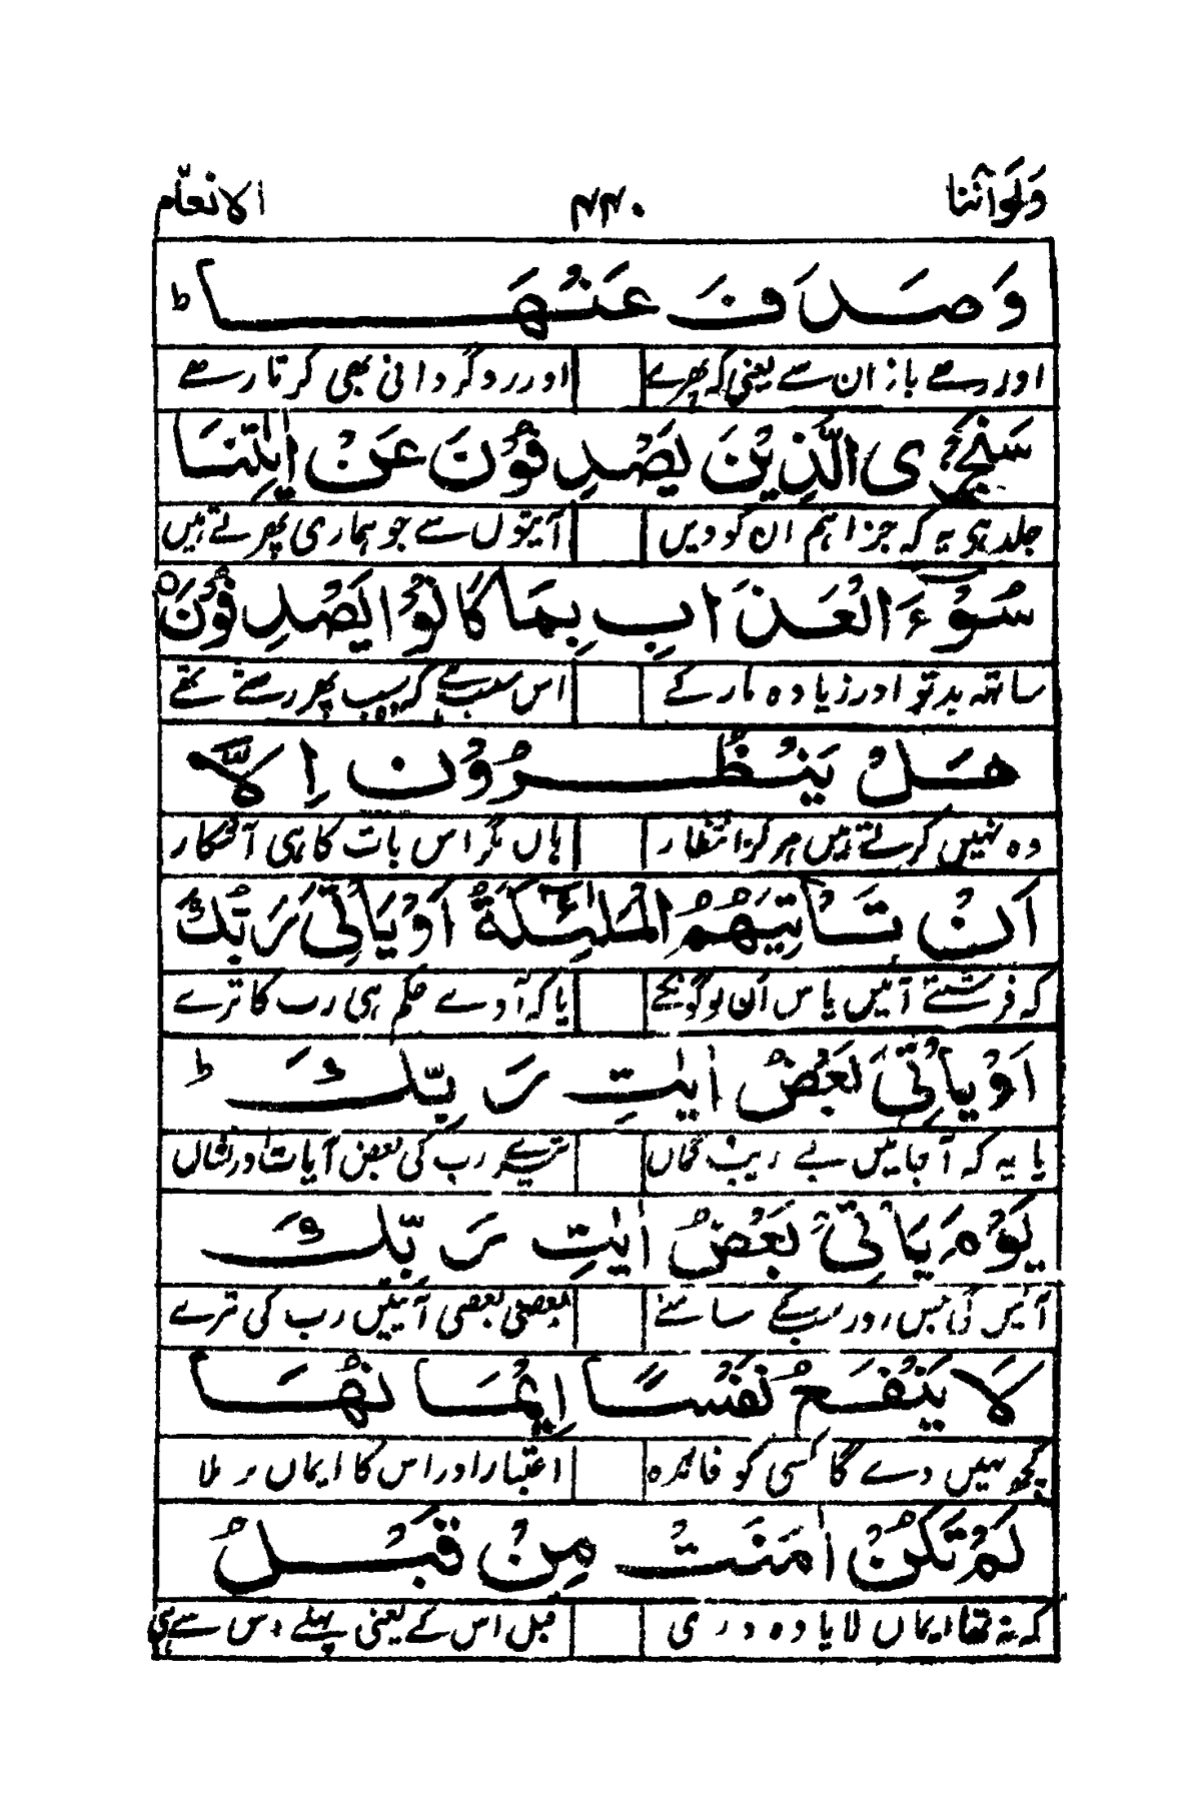 ولواننا ۴۴۰ الانعام
وَصَدَفَ عَنْهَا ؕ
اور رہے باز ان سے یعنی کہ پھرے اور روگردانی بھی کرتا رہے
سَنَجْزِی الَّذِیْنَ یَصْدِفُوْنَ عَنْ اٰیٰتِنَا
جلد ہی یہ کہ جزا ہم ان کو دیں آیتوں سے جو ہماری پھرتے ہیں
سُوْٓءَ الْعَذَابِ بِمَا كَانُوْا یَصْدِفُوْنَ ۝
ساتھ بدتو اور زیادہ مار کے اس سبب سے کہ پھر رہتے تھے
هَلْ یَنْظُرُوْنَ اِلَّاۤ
وہ نہیں کرتے ہیں ہرگز انتظار ہاں مگر اس بات کا ہی آشکار
اَنْ تَاْتِیَهُمُ الْمَلٰٓئِكَةُ اَوْ یَاْتِیَ رَبُّكَ
کہ فرشتے آئیں پاس اُن لوگونکے یا کہ آوے حکم ہی رب کا ترے
اَوْ یَاْتِیَ بَعْضُ اٰیٰتِ رَبِّكَ ؕ
یا یہ کہ آجائیں بے ریب گماں تیرے رب کی بعض آیات اور نشاں
یَوْمَ یَاْتِیْ بَعْضُ اٰیٰتِ رَبِّكَ
آئیں گی جس روز سب کے سامنے بعضی بعضی آیتیں رب کی ترے
لَا یَنْفَعُ نَفْسًا اِیْمَانُهَا
کچھ نہیں دے گا کسی کو فائدہ اعتبار اور اس کا ایماں بر ملا
لَمْ تَكُنْ اٰمَنَتْ مِنْ قَبْلُ
کہ نہ تھا ایماں لایا وہ قبل اس کے یعنی پہلے اس سے ہی